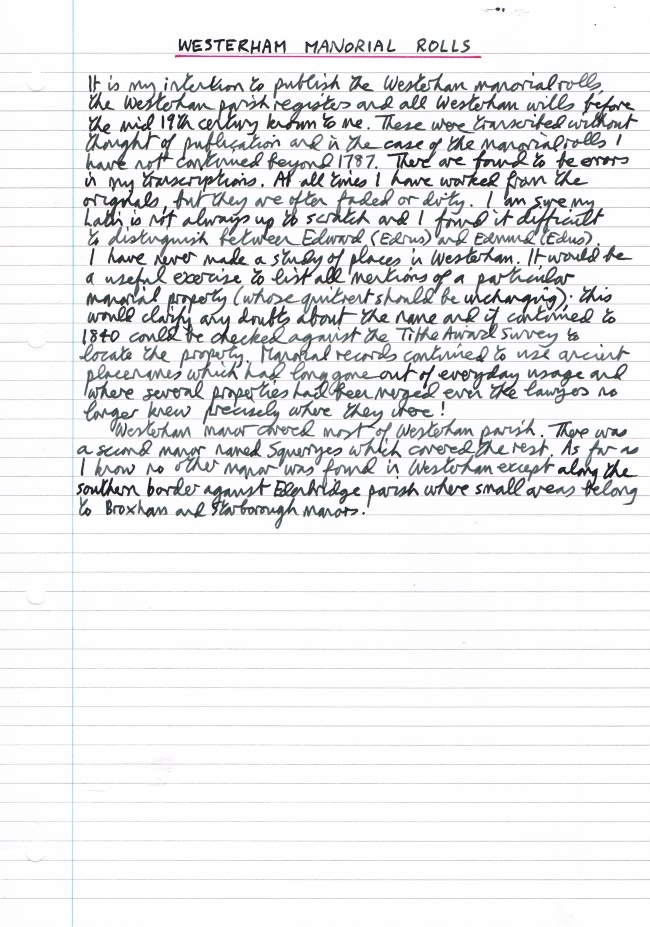 WESTERHAM MANORIAL ROLLS
It is my intention to publish the Westerham manorial rolls,
the Westerham parish registers and all Westerham wills before
the mid 19th century known to me. These were transcribed without
thought of publication and in the case of the manorial rolls I
have not continued beyond 1787. There are found to be errors
in my transcriptions. At all times I have worked from the
originals, but they are often faded or dirty. I am sure my
Latin is not always up to scratch and I found it difficult
to distinguish between Edward (Edrus) and Edmund (Edus).
I have never made a study of places in Westerham. It would be
a useful exercise to list all mentions of a particular
manorial property (whose quitrent should be unchanging): this
would clarify any doubts about the name and if continued to
1840 could be checked against the Tithe Award Survey to
locate the property. Manorial records continued to use ancient
placenames which had long gone out of everyday usage and
where several properties had been merged even the lawyers no
longer knew precisely where they were!
Westerham manor covered most of Westerham parish. There was
a second manor named Squerryes which covered the rest. As far as
I know no other manor was found in Westerham except along the
southern border against Edenbridge parish where small areas belong
to Broxham and Starborough manors.